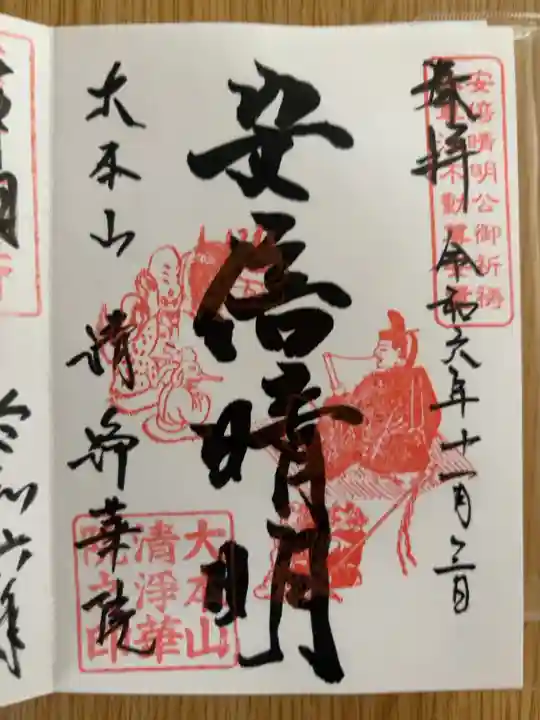 奉拝 令和六年十一月三日
安倍晴明公御祈祷
安倍晴明
大本山 清浄華院
大本山
清淨華
院之印
令和六年